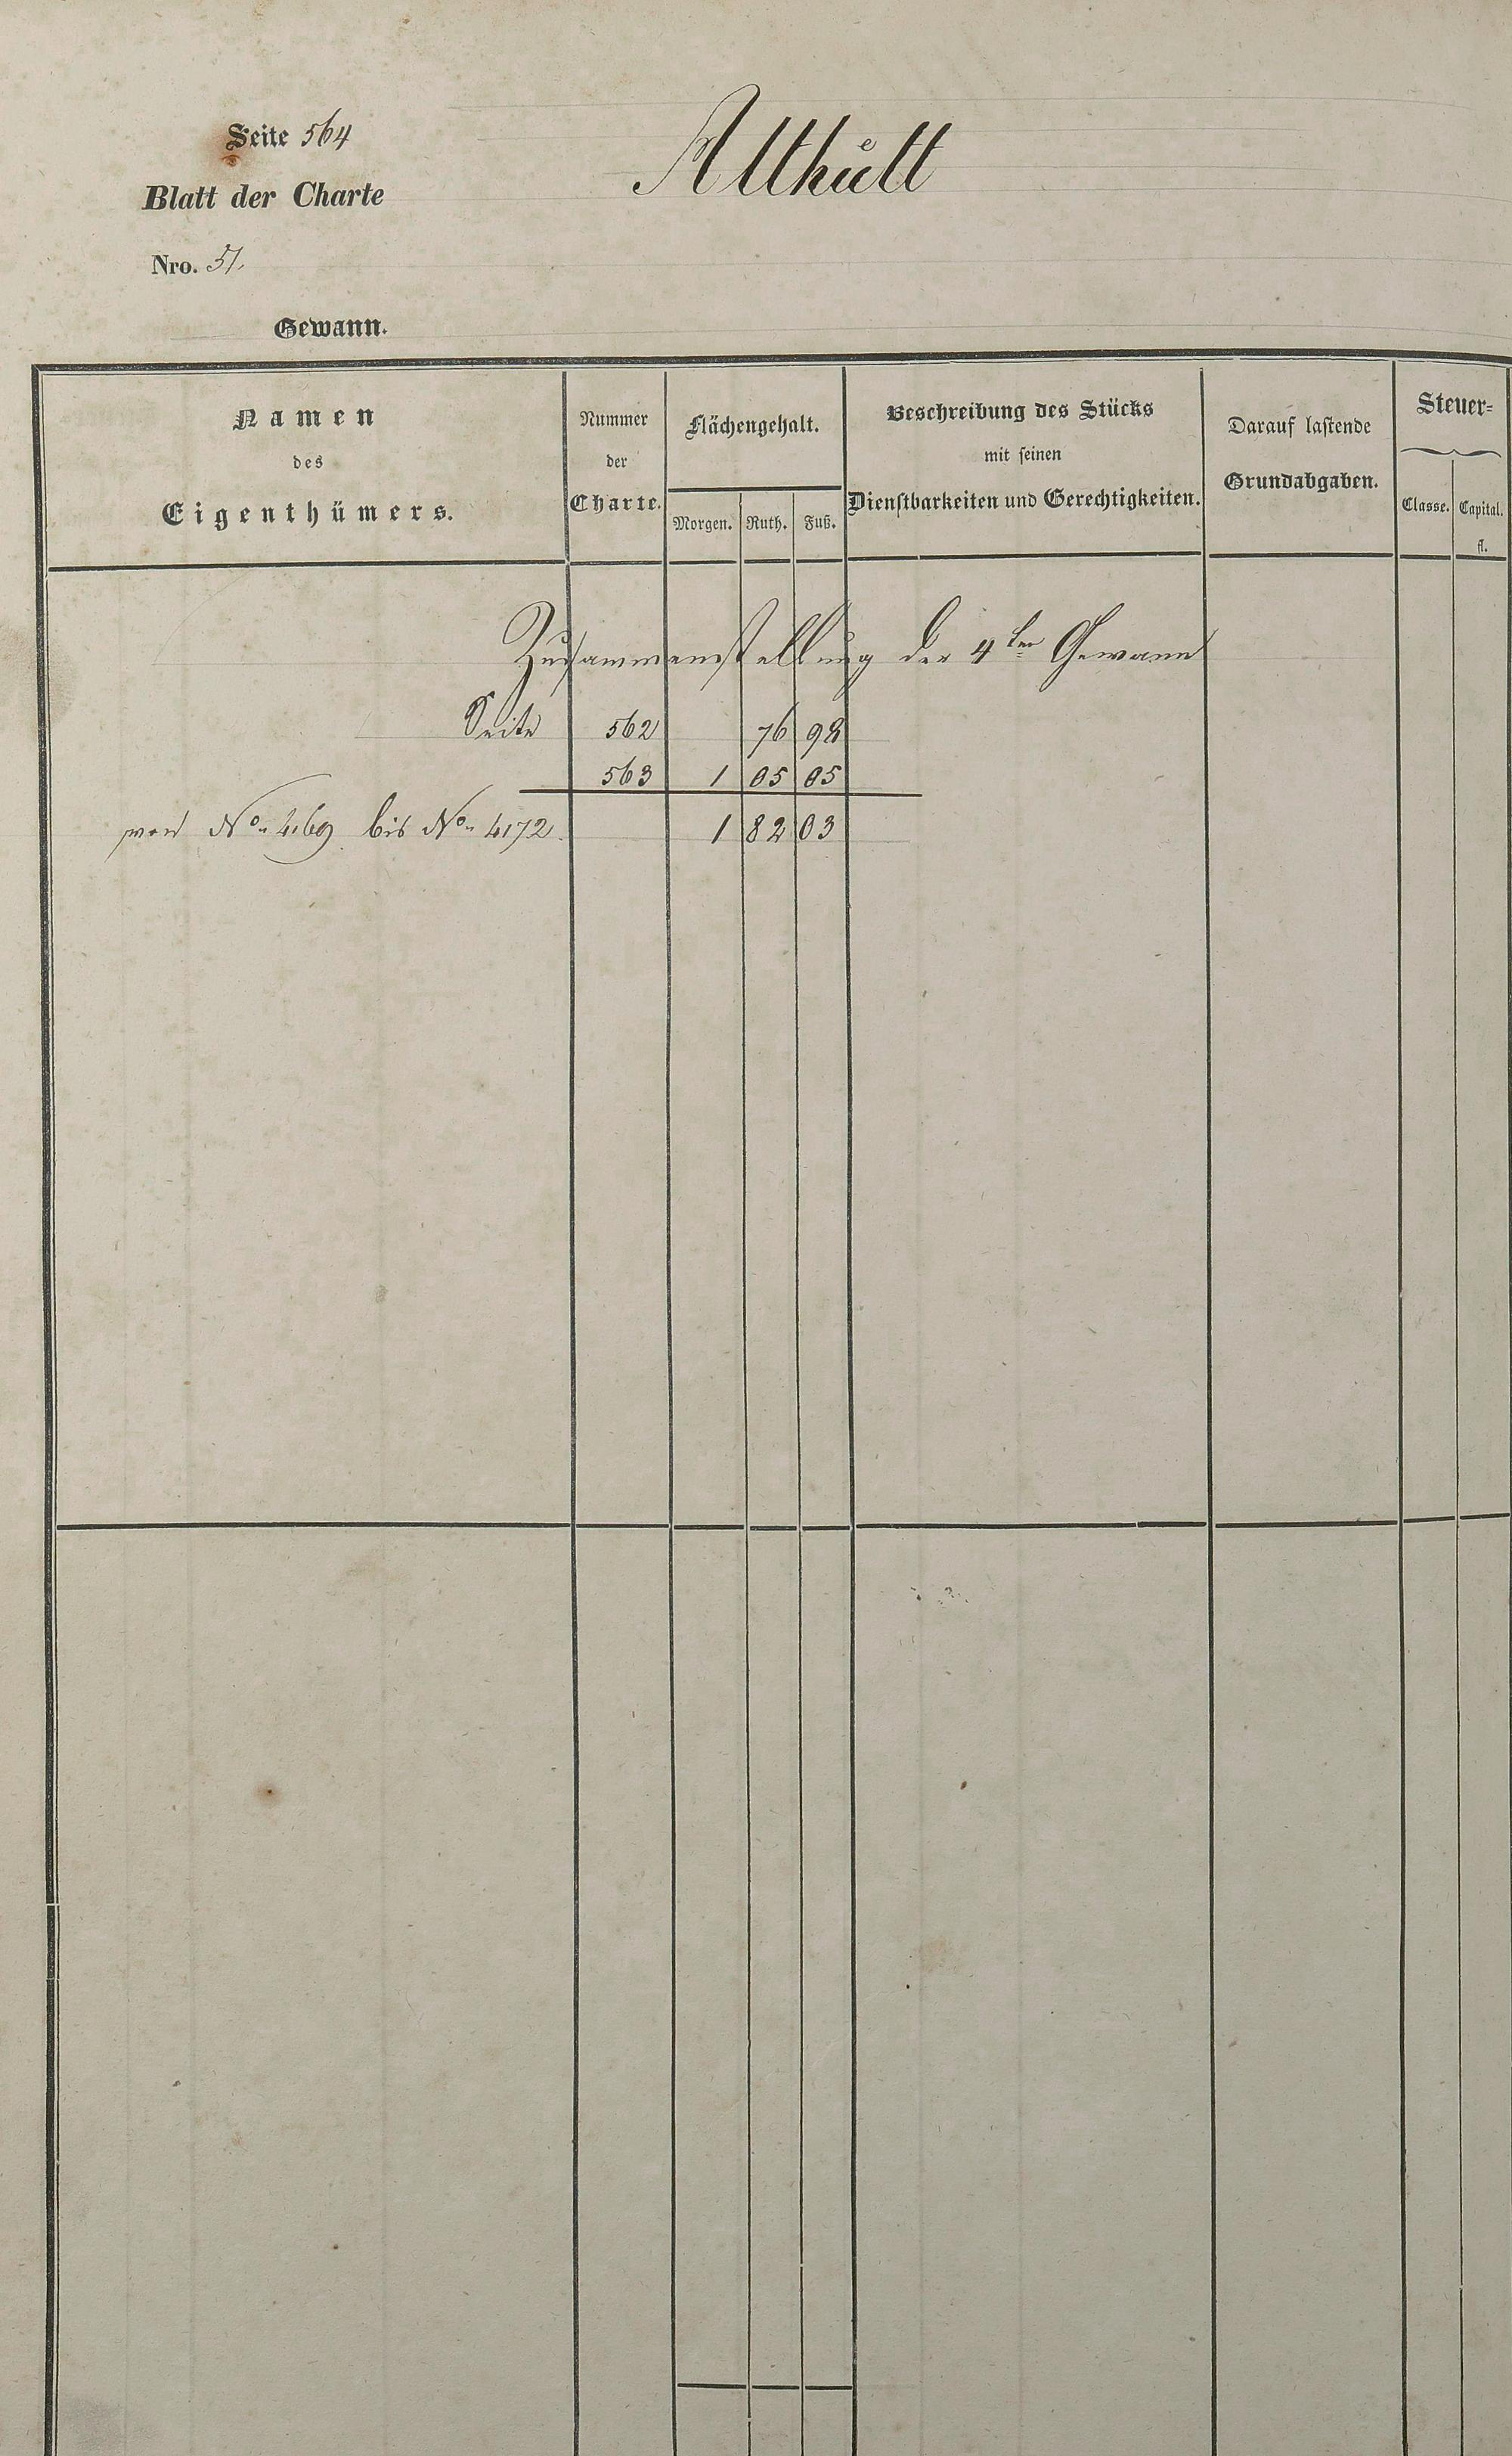 Seite 564
Blatt der Charte
Nro. 51.
Gewann.
Althütt
Namen
des
Eigenthümers.
Nummer
der
Charte.
Flächengehalt.
Morgen. Ruth. Fuß.
Beschreibung des Stücks
mit seinen
Dienstbarkeiten und Gerechtigkeiten.
Darauf lastende
Grundabgaben.
Steuer=
Classe. Capital.
fl.
Zusammenstellung der 4ten Gewann
Seite 562 76 98
563 1 05 05
von No. 469 bis No. 472. 1 82 03